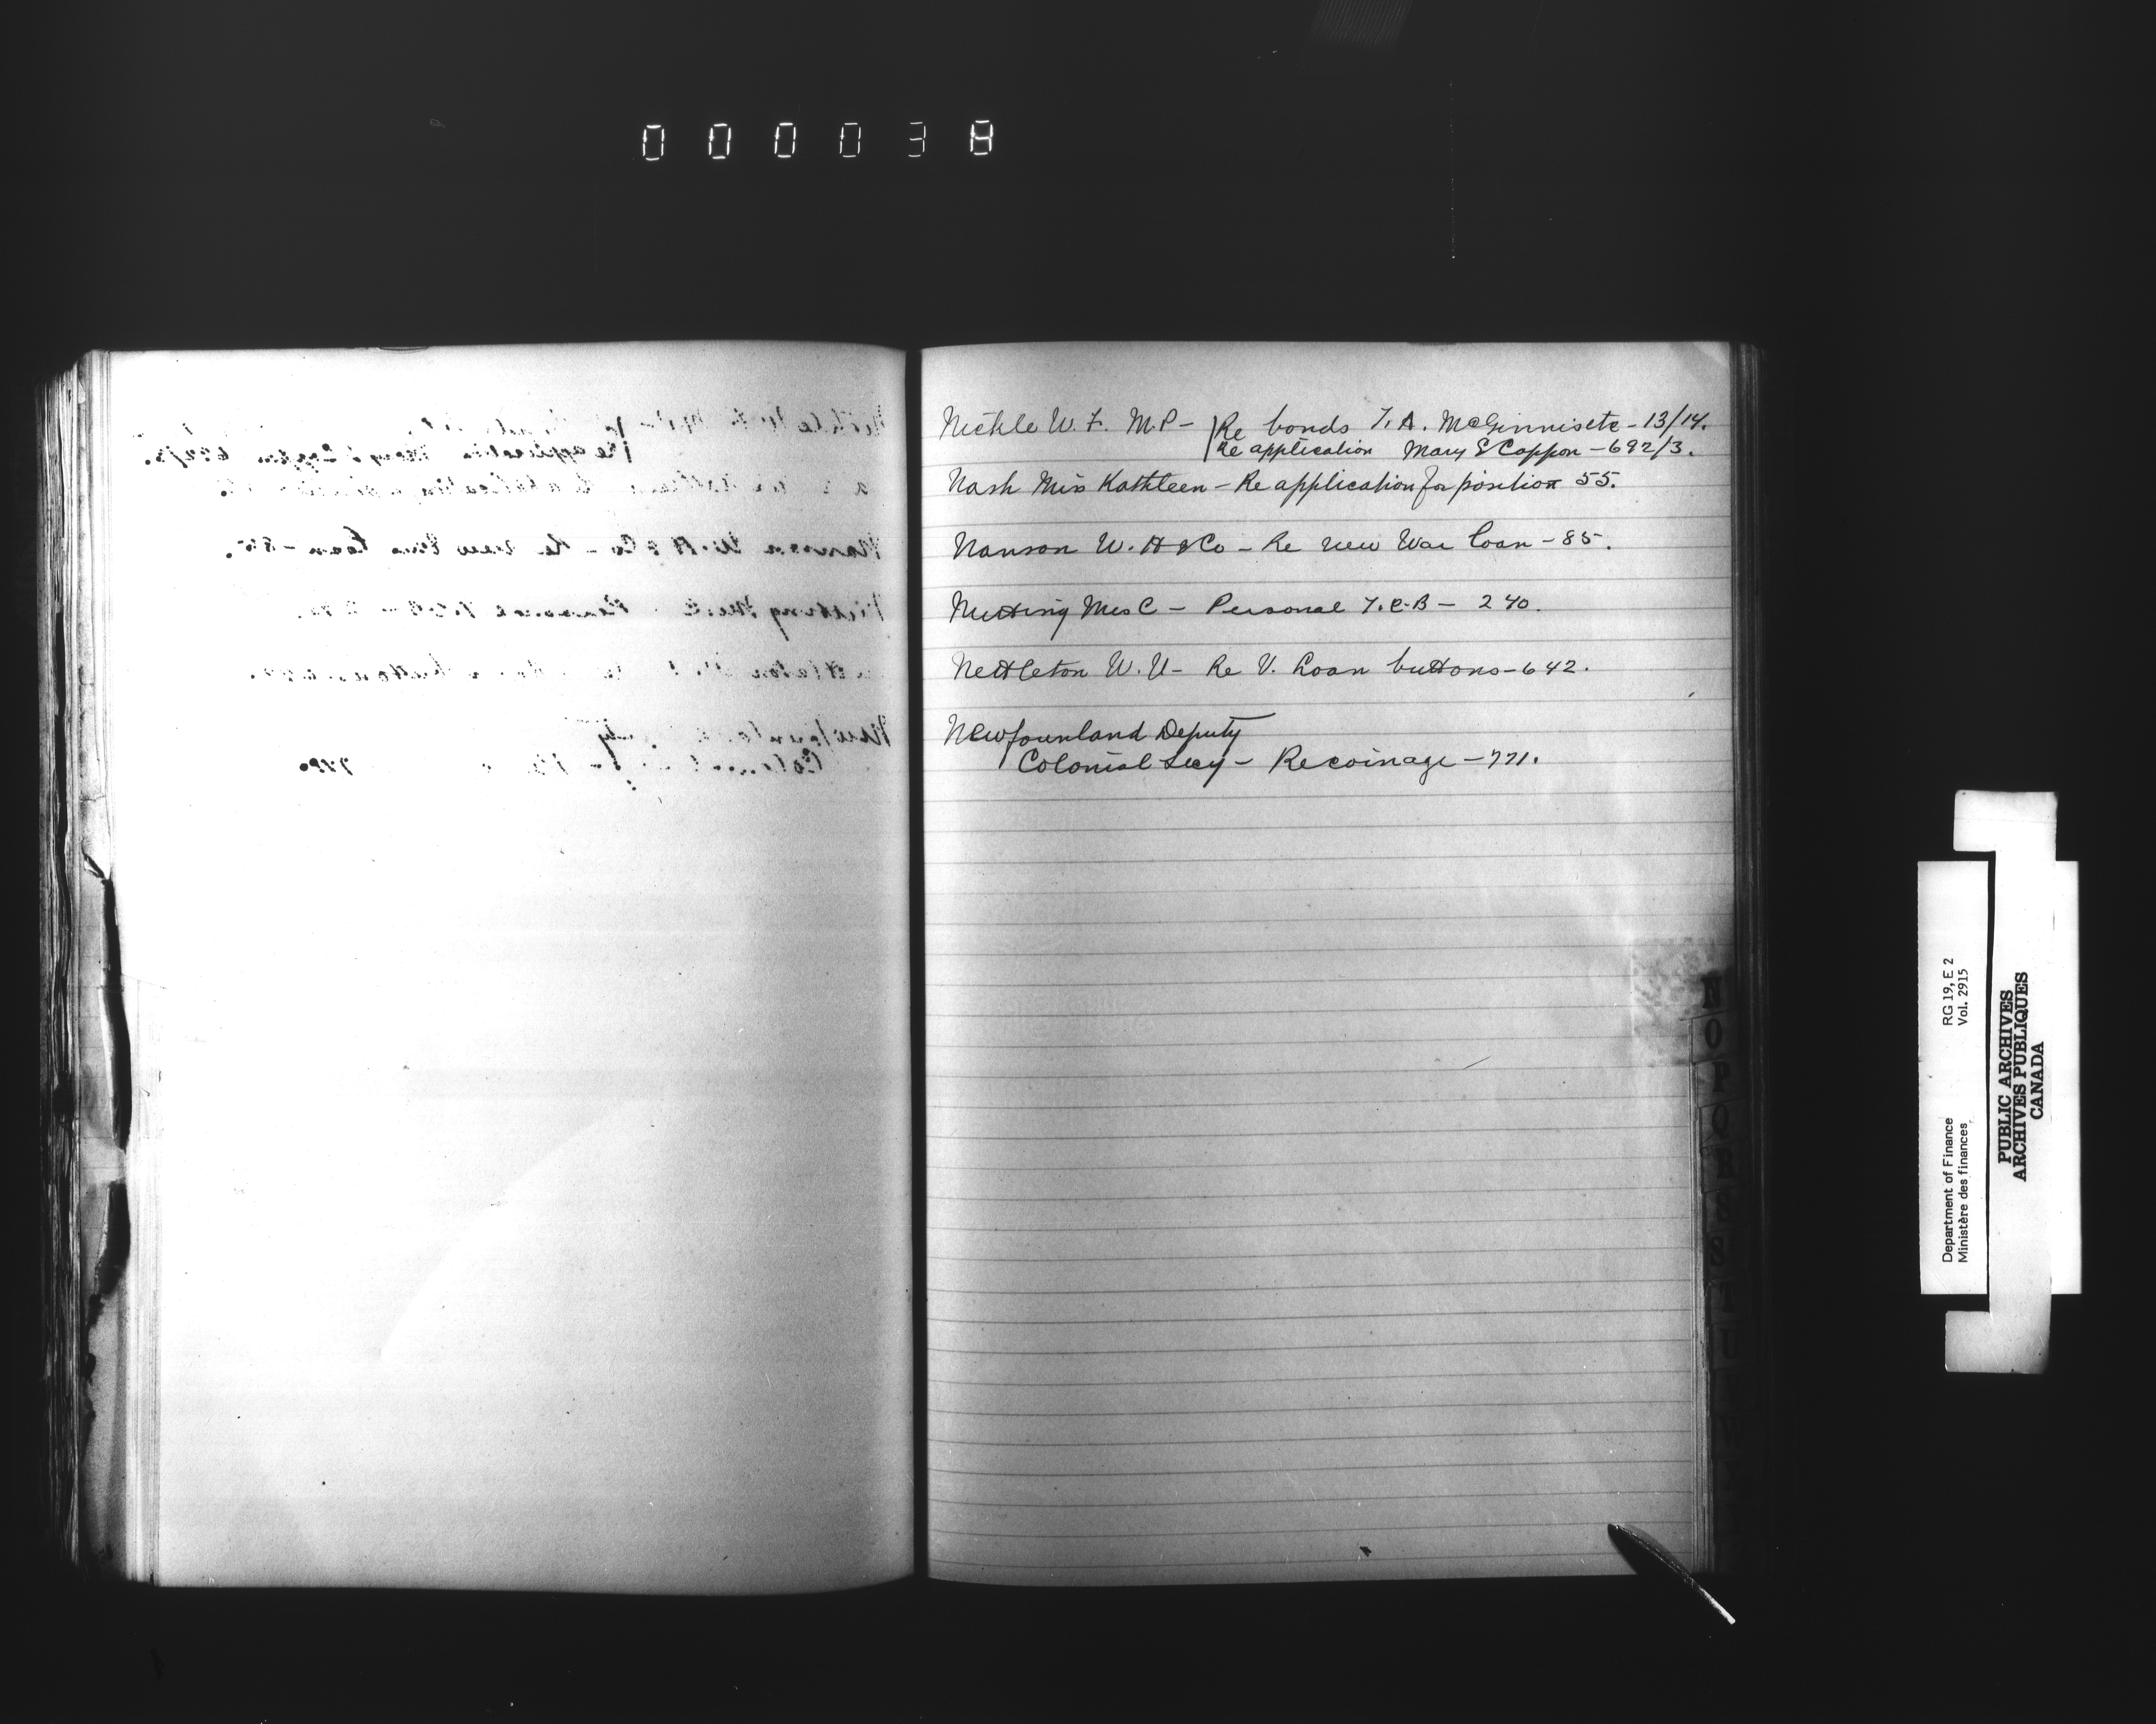 000038
Nickle W. F. M.P - Re bonds T. A. McGinnis etc - 13/14.
Re application Mary E Cappon - 692/3.
Nash Miss Kathleen - Re application for position 55.
Nanson W. H & Co - Re new War Loan - 85.
Nutting Mrs C - Personal T.C.B - 240.
Nettleton W. U - Re V. Loan buttons - 642.
Newfounland Deputy
Colonial Secy - Re coinage - 771.
N
O
P
Q
R
S
T
U
RG 19, E 2
Vol. 2915
Department of Finance
Ministère des finances
PUBLIC ARCHIVES
ARCHIVES PUBLIQUES
CANADA